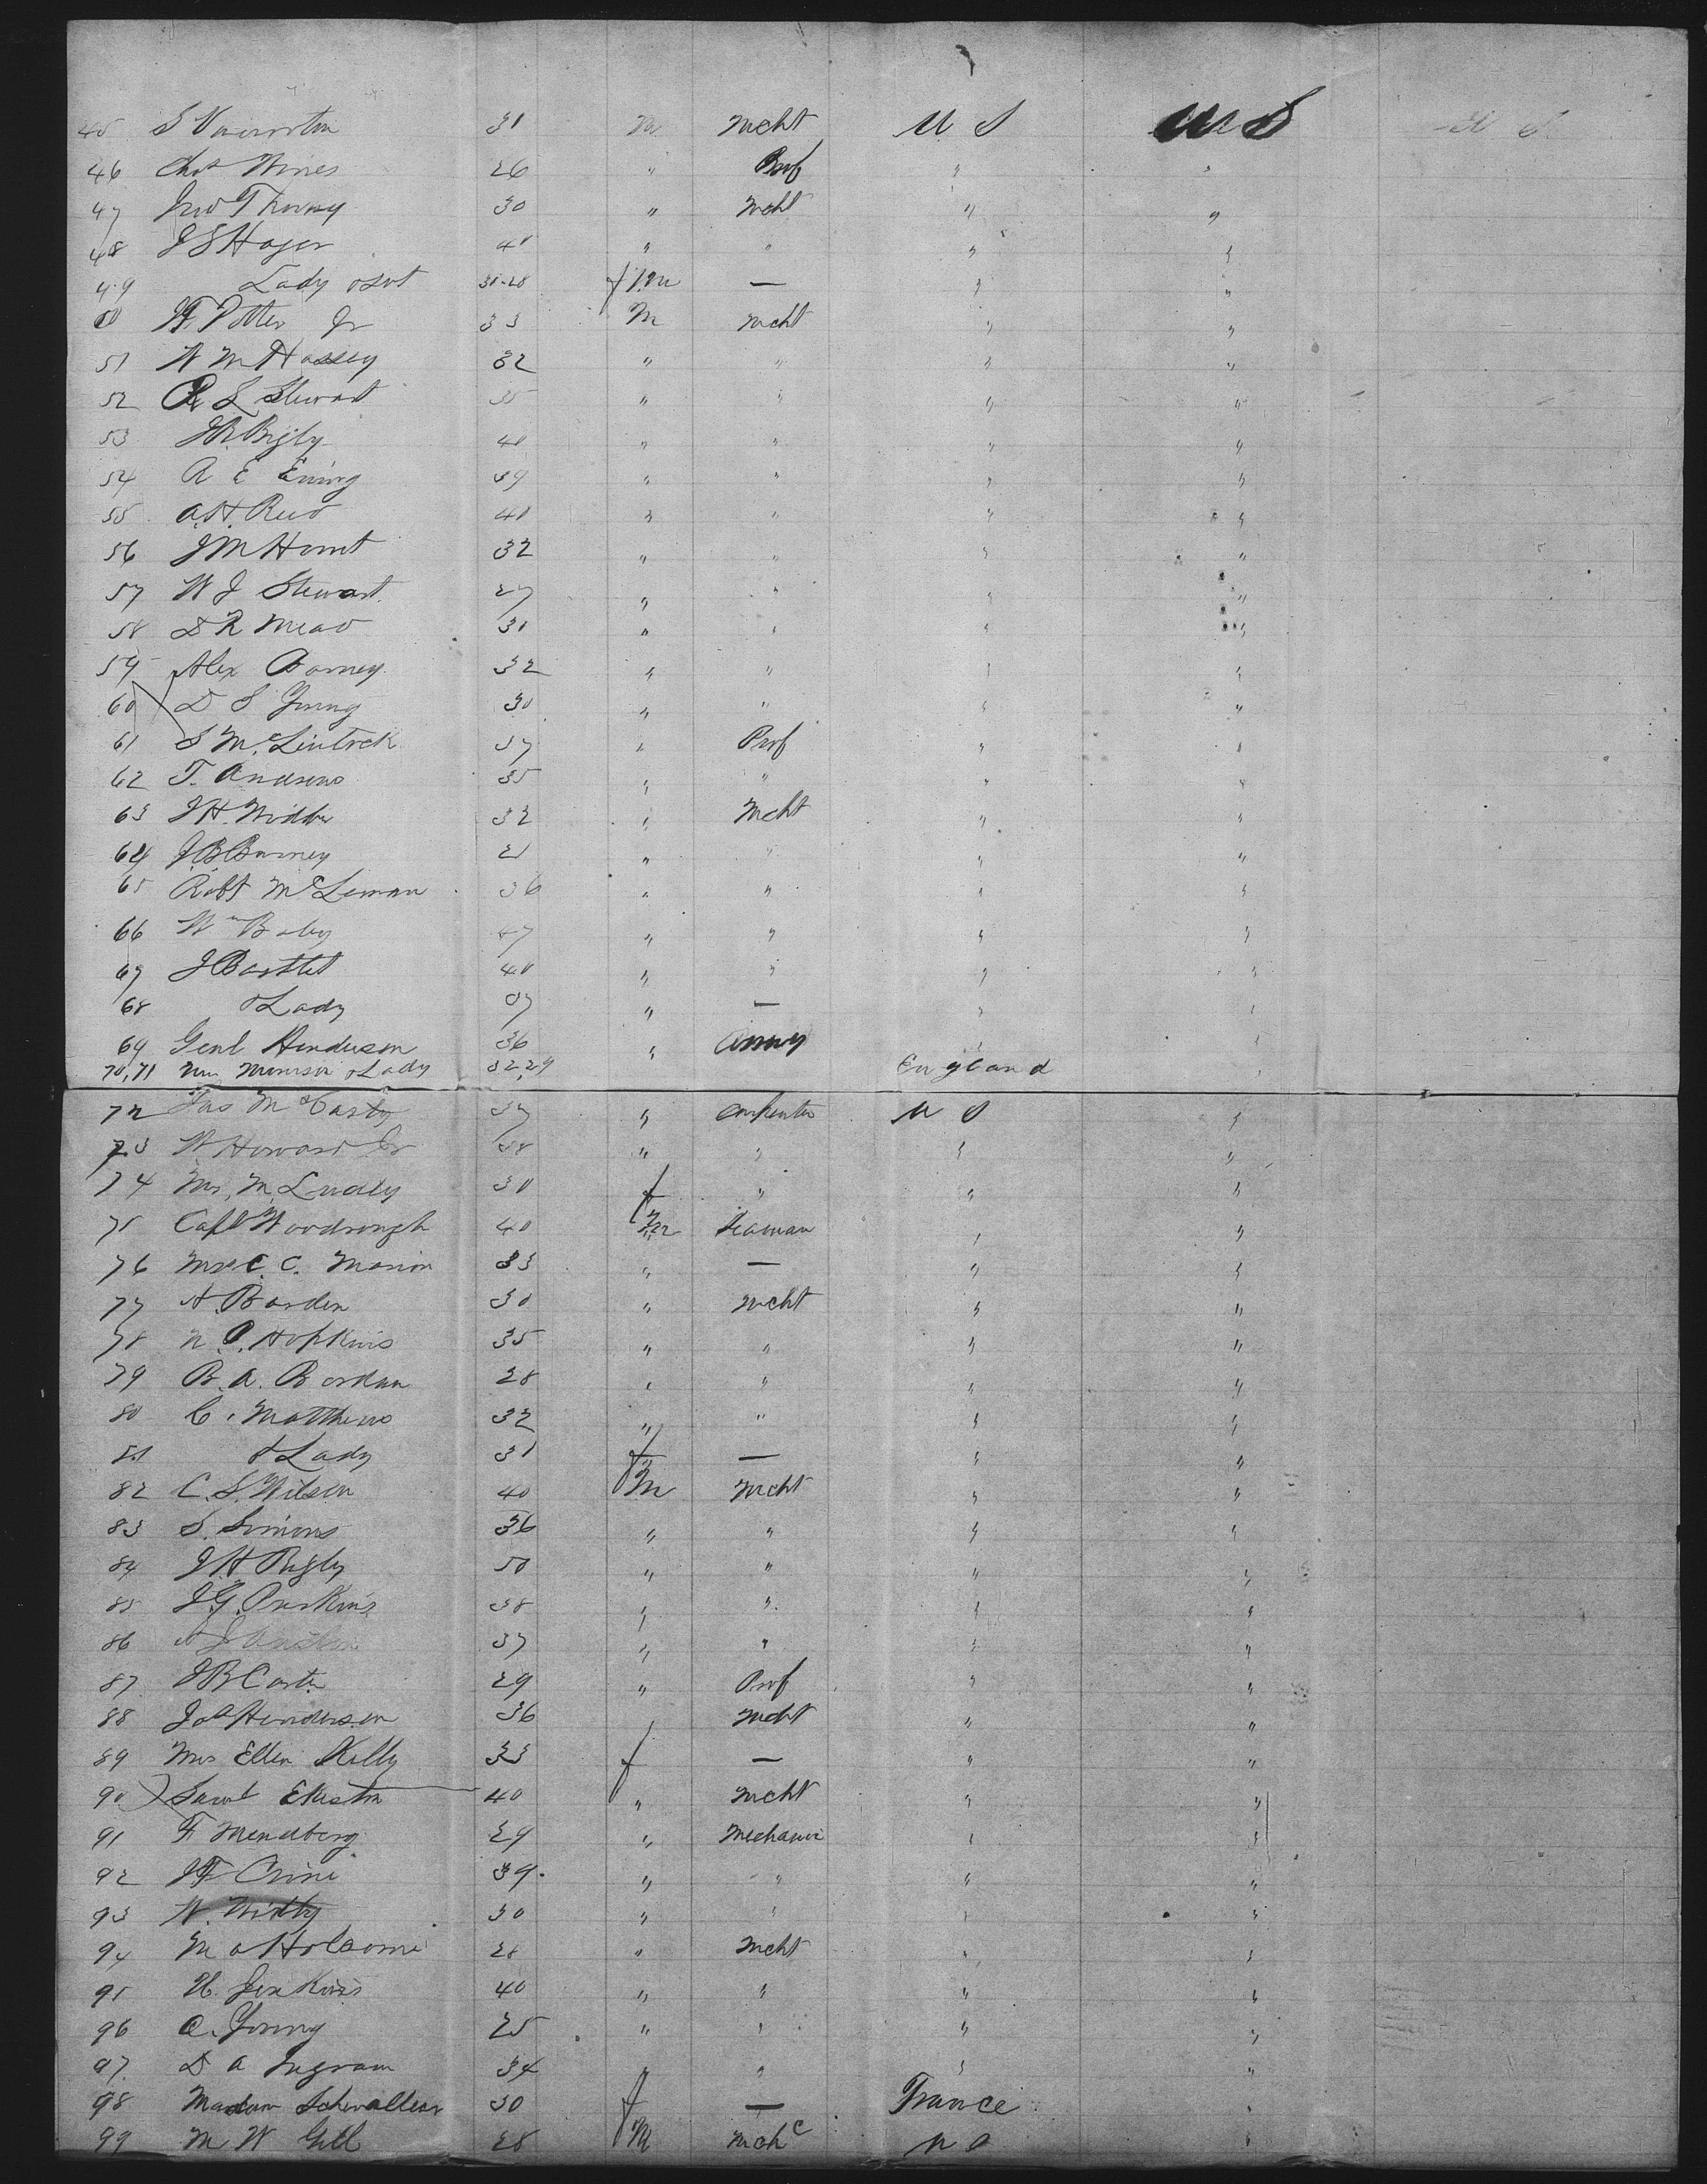 45 S Vanorston 31 m mcht U S U S
46 Chas Wines 26 " Prof " "
47 Jno Thorny 30 " mcht " "
48 J S Hager 40 " " " "
49 Lady & Svt 30-28 f m — " "
50 H F Potter Jr 33 m mcht " "
51 W M Hassey 32 " " " "
52 R L Stewart 35 " " " "
53 J R Bigly 40 " " " "
54 A E Ewing 39 " " " "
55 A. H. Reed 40 " " " "
56 J M Hunt 32 " " " "
57 W J Stewart 27 " " " "
58 D R Mead 30 " " " "
59 Alex Barney 32 " " " "
60 D S Young 30 " " " "
61 S McLintock 37 " Prof " "
62 T. Andrews 35 " " " "
63 J H. Widber 32 " mcht " "
64 J. B. Barney 21 " " " "
65 Robt McLeman 36 " " " "
66 Wm Baley 47 " " " "
67 J Bartlet 40 " " " "
68 & Lady 37 " — " "
69 Genl Henderson 36 " Army " "
70, 71 Wm Morrison & Lady 32,29 England "
72 Jas McCarty 37 " Carpenter U S "
73 W Howard Jr 38 " " " "
74 Mrs. M. Lucely 30 f " " "
75 Capt Woodrough 40 m Seaman " "
76 Mrs C. C. Marion 33 " — " "
77 A. Barden 30 " mcht " "
78 N. P. Hopkins 35 " " " "
79 B. A. Bordan 28 " " " "
80 C. Matthews 32 " " " "
81 & Lady 31 f — " "
82 C. S. Wilson 40 m mcht " "
83 S. Simons 36 " " " "
84 J H Bigly 50 " " " "
85 J. G. Perkins 38 " " " "
86 37 " " " "
87 J B Carter 29 " Prof " "
88 Jas Henderson 36 mcht " "
89 Mrs Ellen Kelly 33 f — " "
90 Saml 40 " mcht " "
91 F Mendberg 29 " Mechanic " "
92 J F Crine 39. " " " "
93 W. 30 " " " "
94 M A Holcome 28 " mcht " "
95 H. Jenkins 40 " " " "
96 C. Young 25 " " " "
97. D A Ingram 34 " " "
98 Madam Schevallier 30 f — France "
99 M W Gill 28 m mch U S "